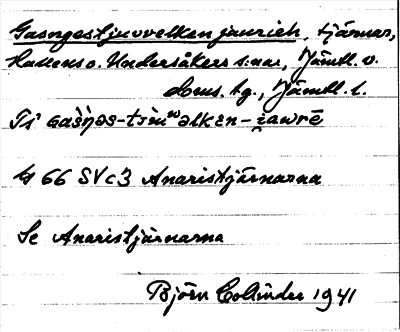 Gasngestjuovelken jaurieh, tjärnar,
Hallens o. Undersåkers s:nar, Jämtl. v.
doms. tg., Jämtl. l.
Ti
G 66 SV c3 Anaristjärnarna
Se Anaristjärnarna
Björn Collinder 1941